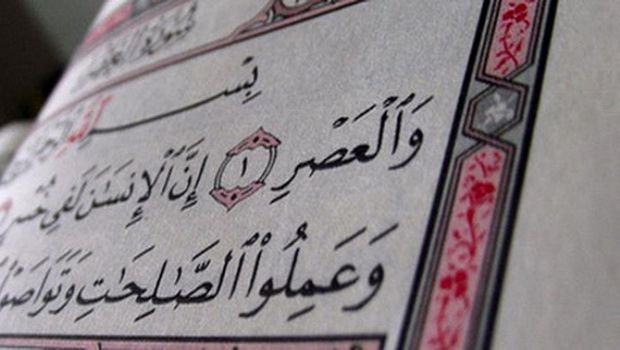 بِسْمِ ٱللَّهِ
وَٱلْعَصْرِ ١ إِنَّ ٱلْإِنسَٰنَ لَفِى خُسْرٍ
وَعَمِلُوا۟ ٱلصَّٰلِحَٰتِ وَتَوَاصَوْا۟